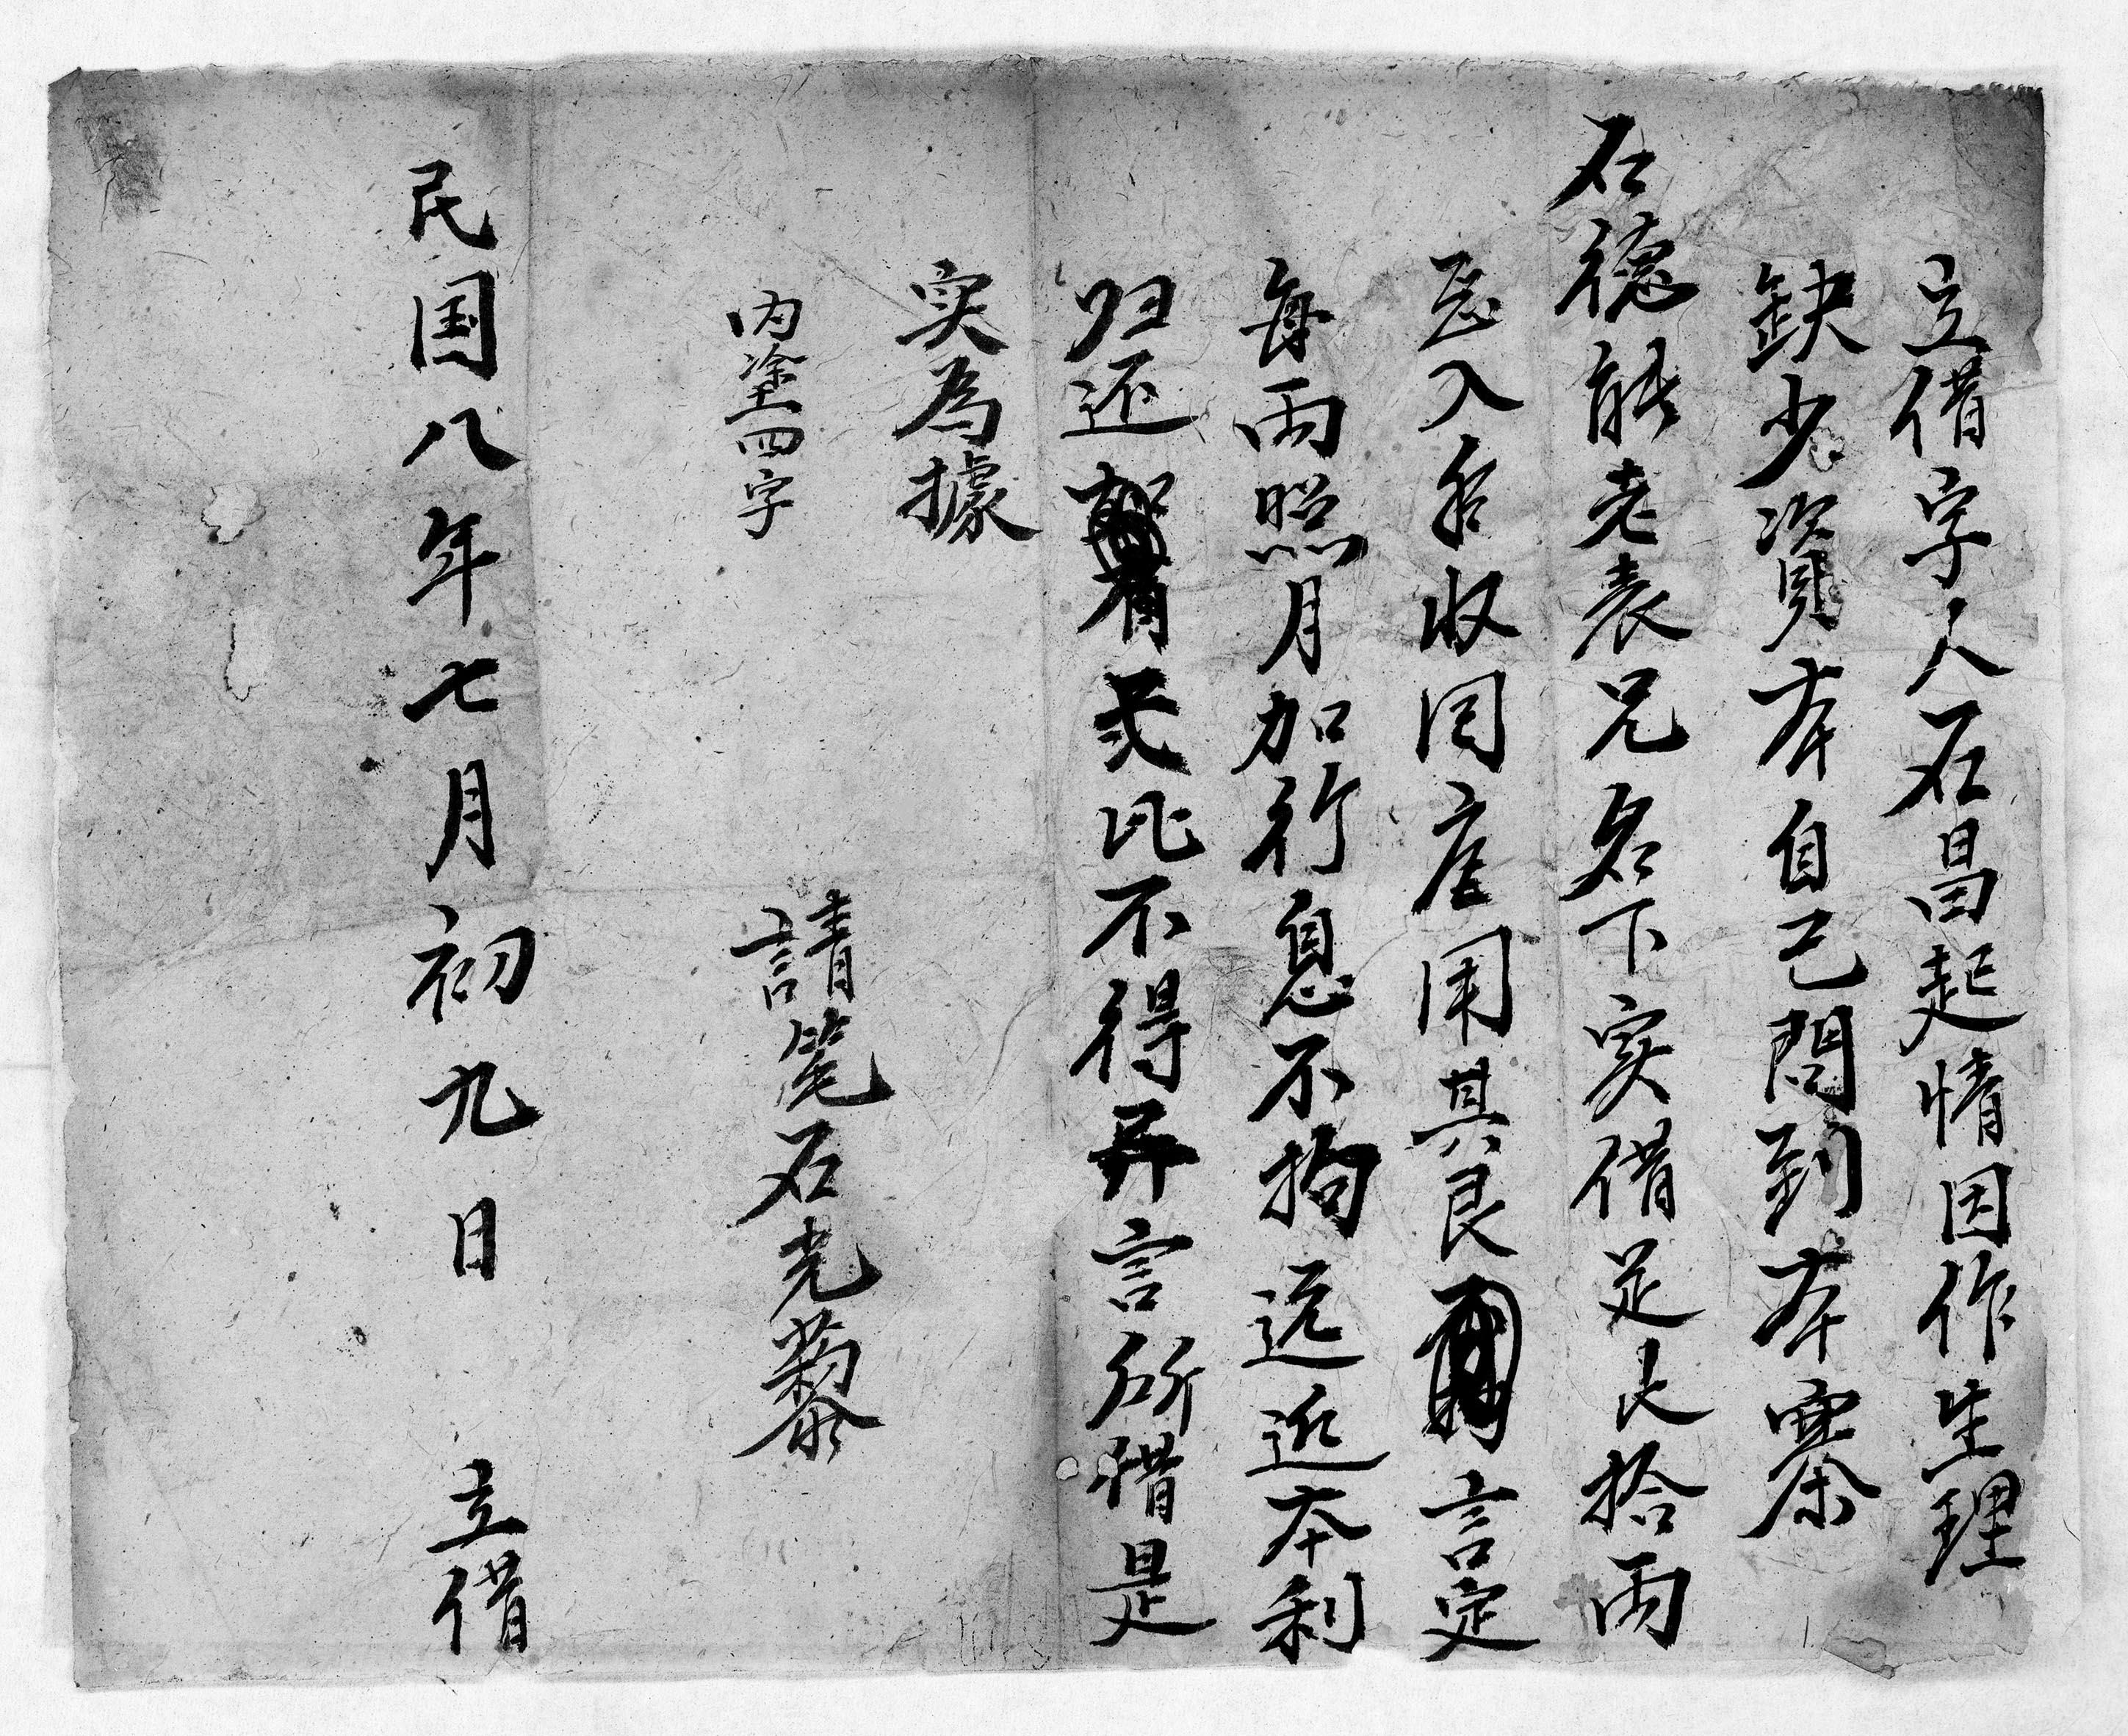 立借字人石昌起情因作生理
缺少資本自己問到本寨
石德能老表兄名下实借足艮拾両
恁入手收囘应用其艮言定
每両照月加行息不拘远近本利
归还有弍比不得异言所借是
实為據
内塗四字
請笔石光藜
民国八年七月初九日 立借